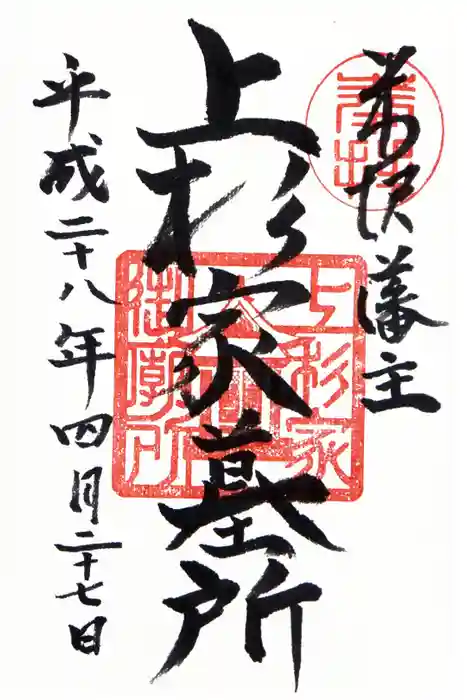 奉拝
米澤藩主
上杉家墓所
上杉家
御廟所
平成二十八年四月二十七日